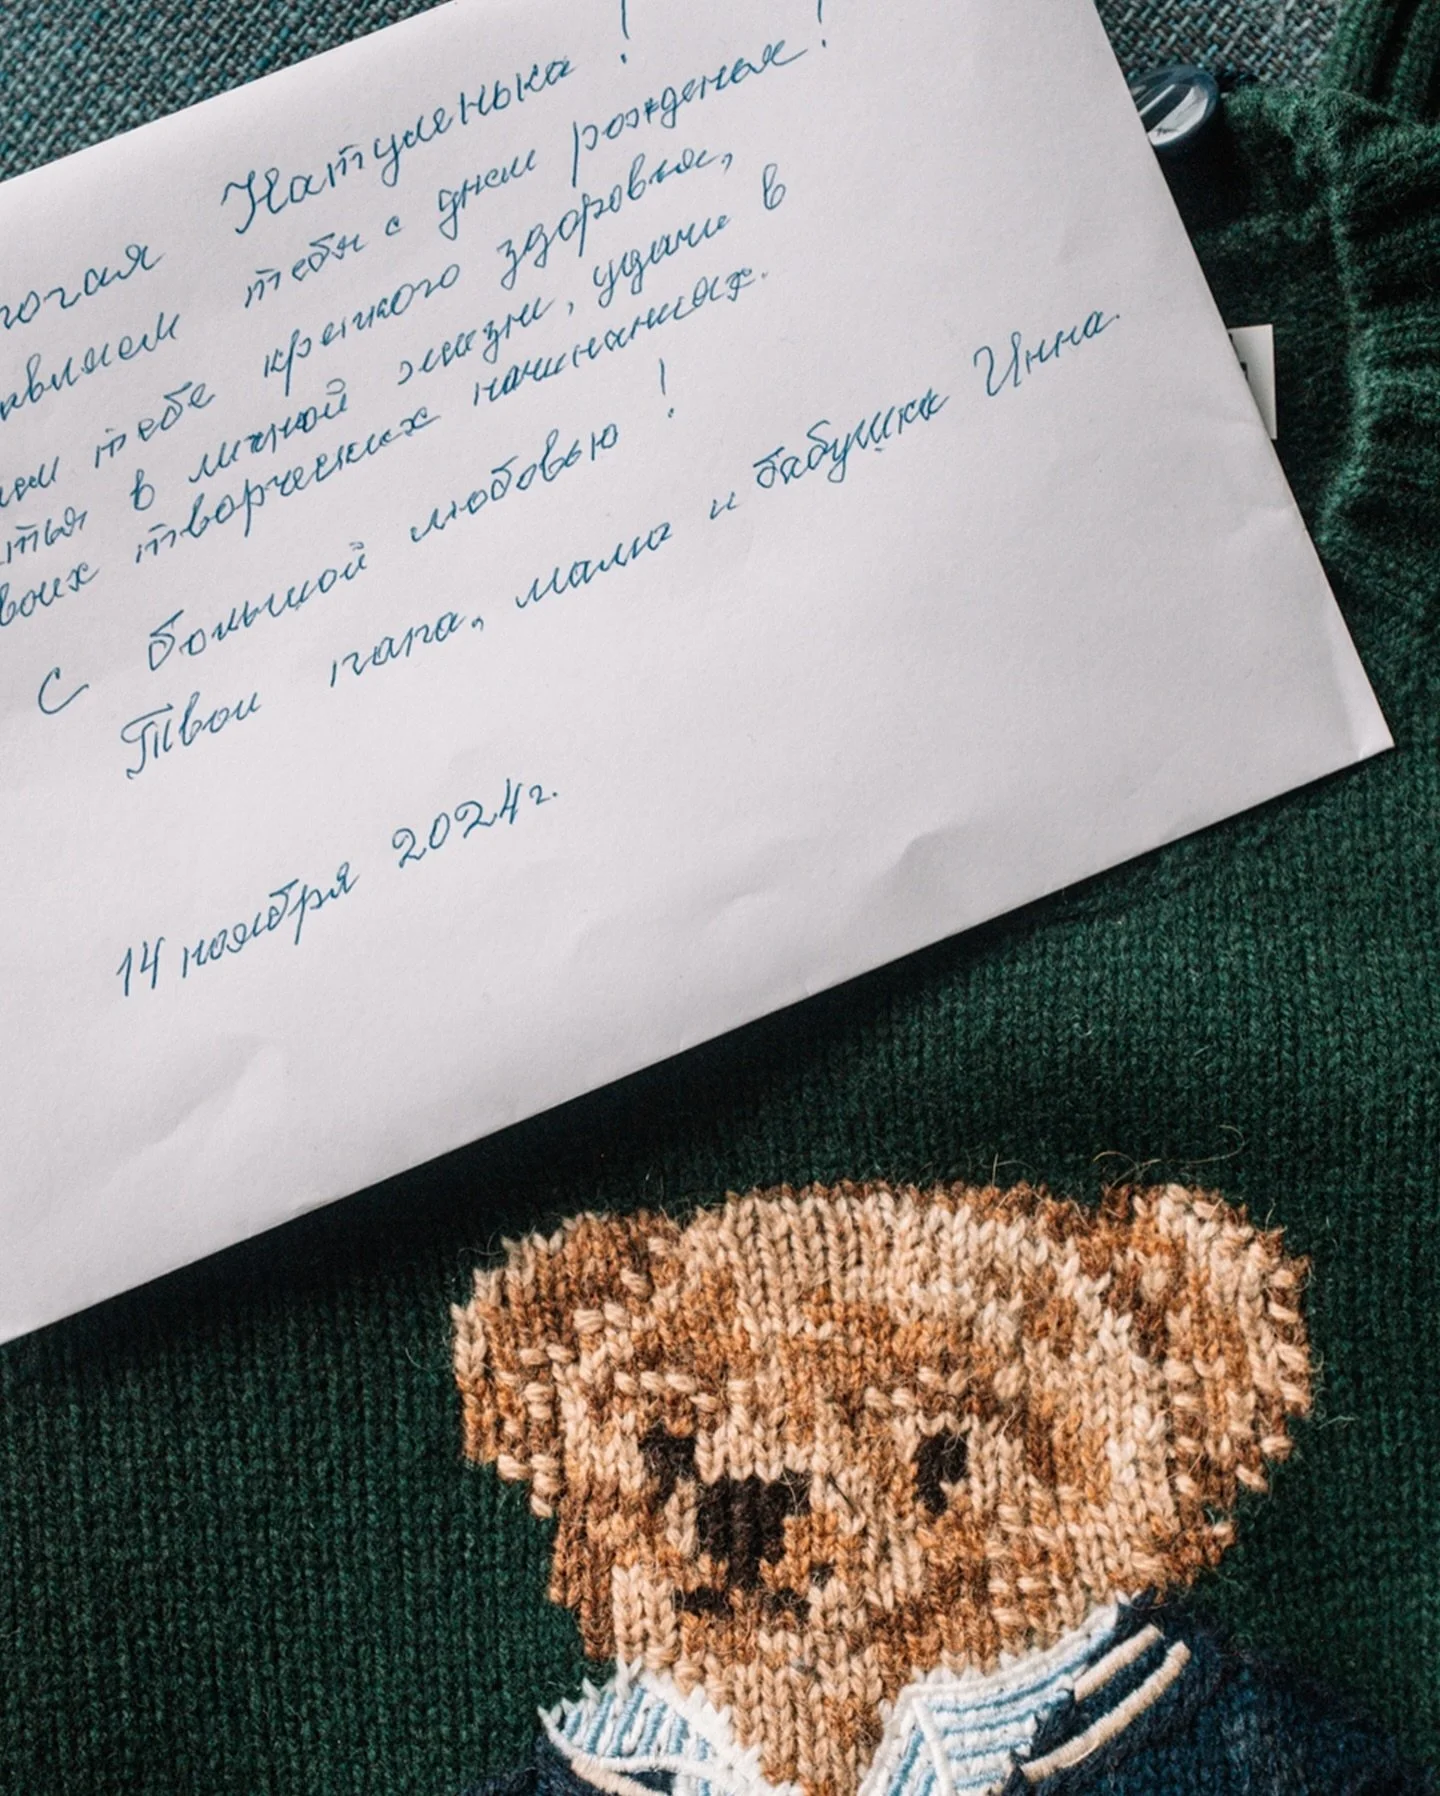 рогая Натуленька!
авляем тебя с днем рожденья!
аем тебе крепкого здоровья,
стья в личной жизни, удачи в
воих творческих начинаниях.
С большой любовью!
Твои папа, мама и бабушка Инна.
14 ноября 2024г.